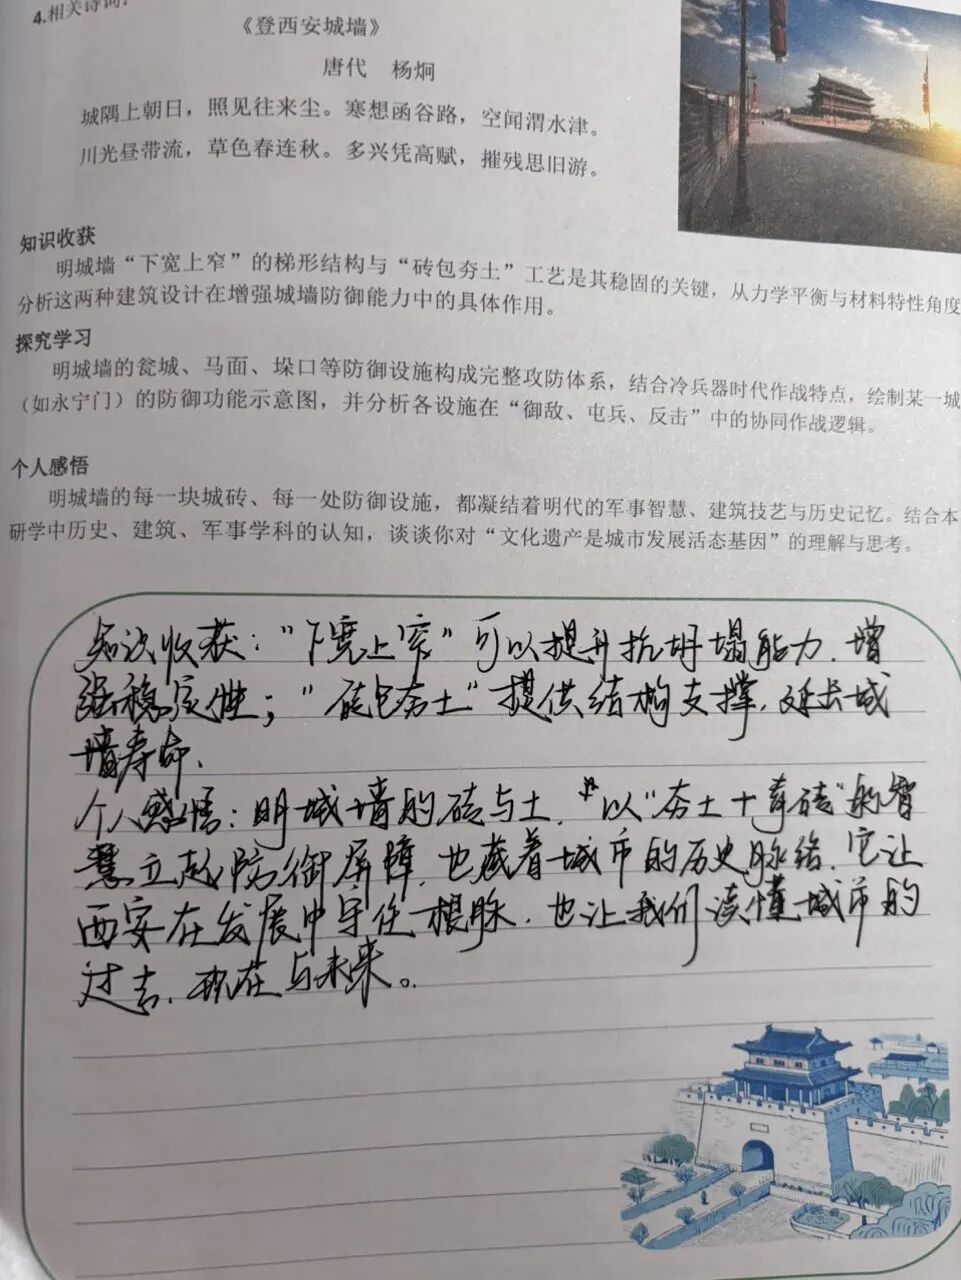 4.相关诗词：
《登西安城墙》
唐代 杨炯
城隅上朝日，照见往来尘。寒想函谷路，空闻渭水津。
川光昼带流，草色春连秋。多兴凭高赋，摧残思旧游。
知识收获
明城墙“下宽上窄”的梯形结构与“砖包夯土”工艺是其稳固的关键，从力学平衡与材料特性角度
分析这两种建筑设计在增强城墙防御能力中的具体作用。
探究学习
明城墙的瓮城、马面、垛口等防御设施构成完整攻防体系，结合冷兵器时代作战特点，绘制某一城
（如永宁门）的防御功能示意图，并分析各设施在“御敌、屯兵、反击”中的协同作战逻辑。
个人感悟
明城墙的每一块城砖、每一处防御设施，都凝结着明代的军事智慧、建筑技艺与历史记忆。结合本
研学中历史、建筑、军事学科的认知，谈谈你对“文化遗产是城市发展活态基因”的理解与思考。
知识收获：“下宽上窄”可以提升抗坍塌能力，增
强稳定性；“砖包夯土”提供结构支撑，延长城
墙寿命。
个人感悟：明城墙的砖与土，以“夯土+青砖”的智
慧立起防御屏障，也藏着城市的历史脉络，它让
西安在发展中守住根脉，也让我们读懂城市的
过去、现在与未来。